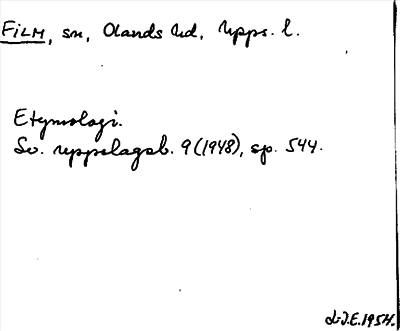 FILM, sn, Olands hd, Upps. l.
Etymologi.
Sv. uppslagsb. 9 (1948), sp. 544.
J.E. 1954.